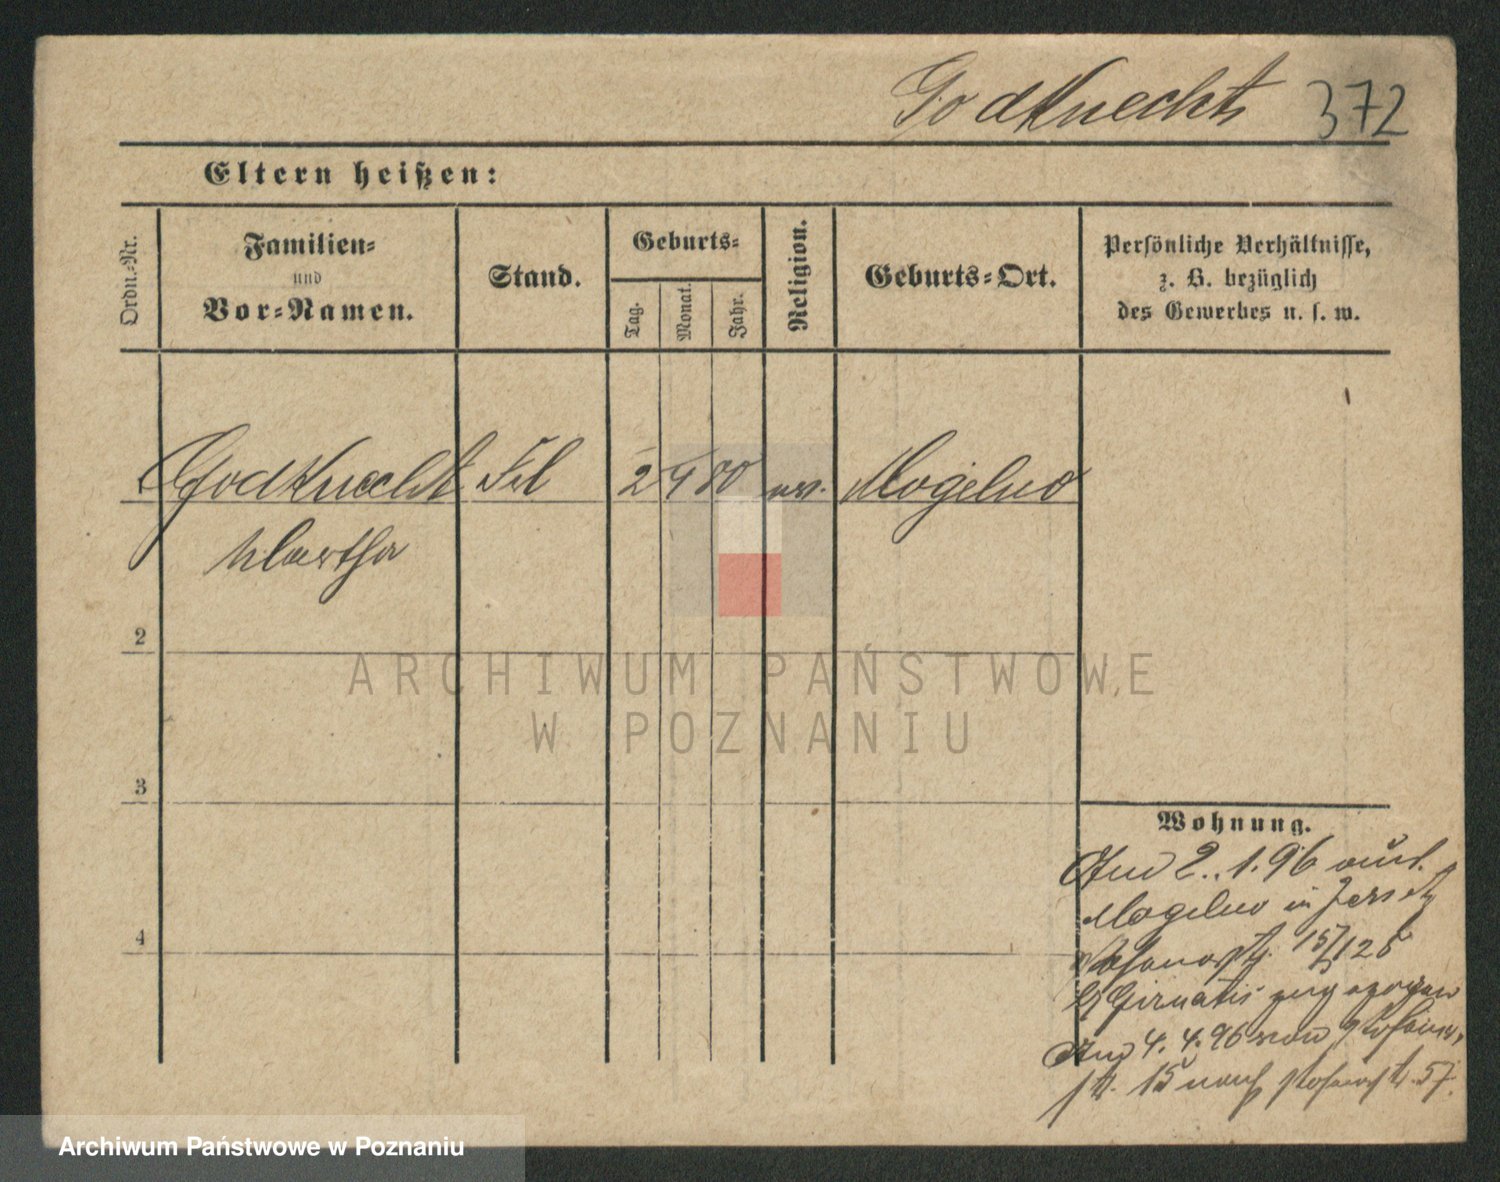 Godknecht 372
Eltern heißen:
Ordn.-Nr.
Familien-
und
Vor-Namen.
Stand.
Geburts-
Tag.
Monat.
Jahr.
Religion.
Geburts-Ort.
Persönliche Verhältnisse,
z. B. bezüglich
des Gewerbes u. s. w.
Godknecht Frl 2 4 80 ev. Mogilno
Martha
2
3
4
Wohnung.
Am 2. 1. 96 aus
Mogilno in Jersitz
15/125
zugezogen
Am 4. 4. 96 von
str. 15 nach 57.
ARCHIWUM PAŃSTWOWE
W POZNANIU
Archiwum Państwowe w Poznaniu